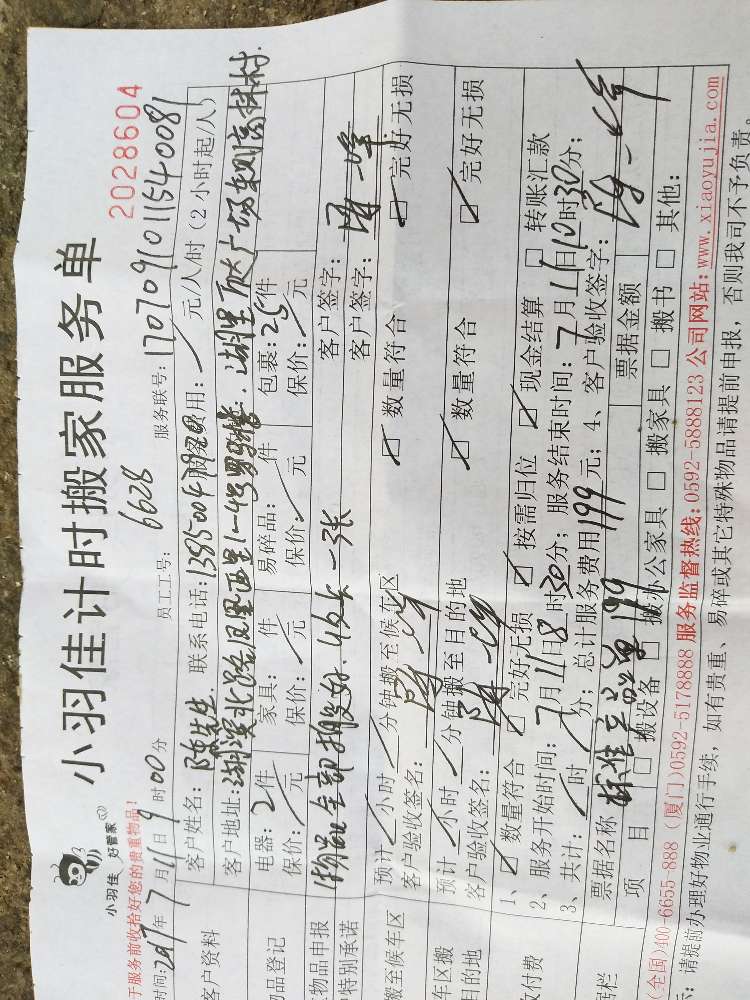 小羽佳 好管家
小羽佳计时搬家服务单
2028604
于服务前收拾好您的贵重物品!
时间:2017年7月11日9时00分 员工工号: 6628 服务联号: 1707091011540081
客户资料 客户姓名: 陈先生 联系电话: 服务费用: 元/人/时 (2小时起/人)
客户地址: 湖滨北路凤凰 湖里万达广场
物品登记 电器: 2件 家具: 件 易碎品: 件 包裹: 25件
保价: 元 保价: 元 保价: 元 保价: 元
物品申报 物品全部搬 一张 客户签字:
特别承诺 客户签字:
搬至候车区 预计 小时 分钟搬至候车区 数量符合 完好无损
客户验收签名:
车区搬 预计 小时 分钟搬至目的地 数量符合 完好无损
目的地 客户验收签名:
付费 1、 数量符合 完好无损 按需归位 现金结算 转账汇款
2、服务开始时间: 7月11日8时30分; 服务结束时间: 7月11日10时30分;
3、共计: 时 分; 总计服务费用 199 元; 4、客户验收签字:
票据名称 199 票据金额
栏 项目 搬设备 搬办公家具 搬家具 搬书 其他:
(全国)400-6655-888 (厦门)0592-5178888 服务监督热线:0592-5888123 公司网站:www.xiaoyujia.com
示: 请提前办理好物业通行手续, 如有贵重、易碎或其它特殊物品请提前申报, 否则我司不予负责。